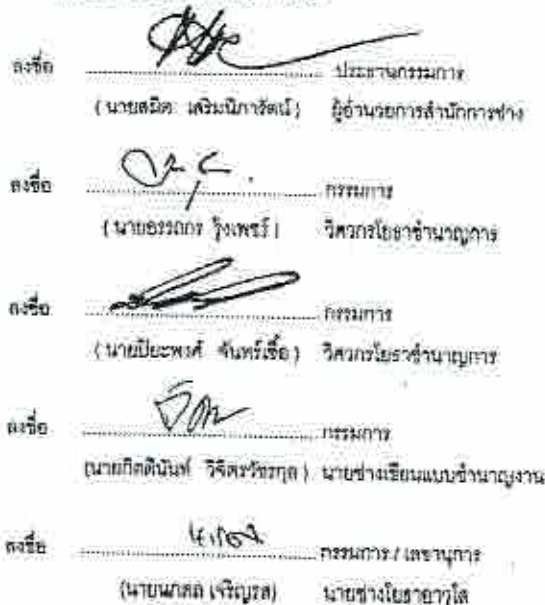 ลงชื่อ ........................ ประธานกรรมการ
(นายสมิต เสริมนิภารัตน์) ผู้อำนวยการสำนักการช่าง
ลงชื่อ ........................ กรรมการ
(นายอรรถกร รุ้งเพชร์) วิศวกรโยธาชำนาญการ
ลงชื่อ ........................ กรรมการ
(นายปิยะพงศ์ จันทร์เชื้อ) วิศวกรโยธาชำนาญการ
ลงชื่อ ........................ กรรมการ
(นายกิตตินันท์ วิจิตรวัชรกุล) นายช่างเขียนแบบชำนาญงาน
ลงชื่อ ........................ กรรมการ / เลขานุการ
(นายนภดล เจริญรส) นายช่างโยธาอาวุโส